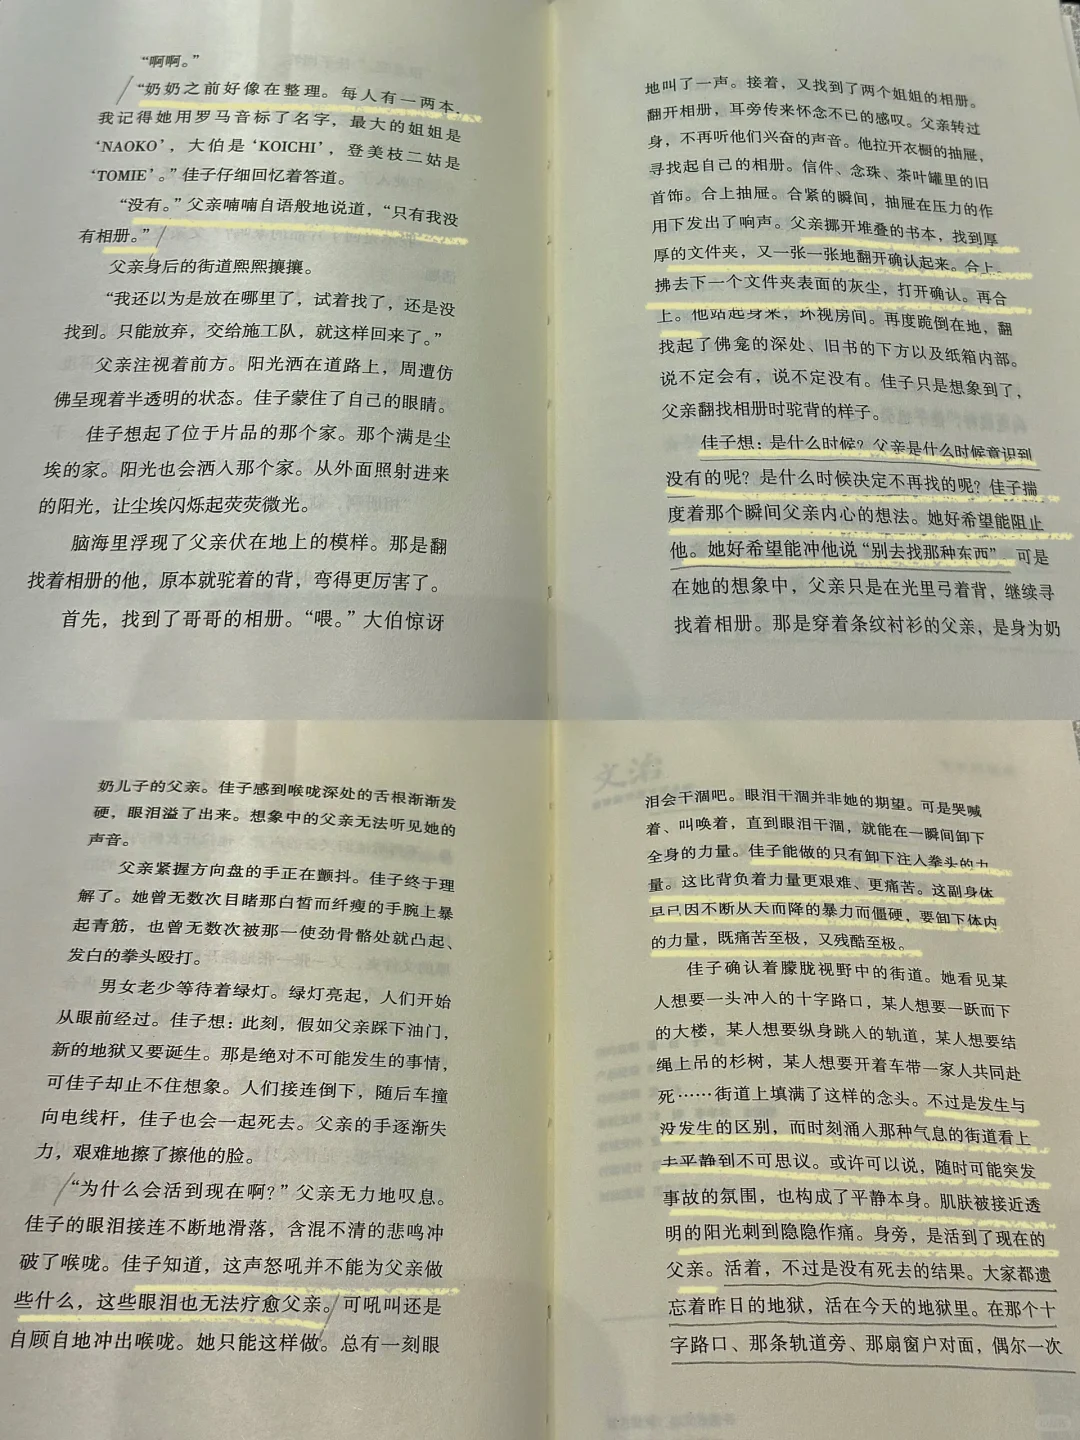 “啊啊。”
“奶奶之前好像在整理。每人有一两本，
我记得她用罗马音标了名字，最大的姐姐是
‘NAOKO’，大伯是‘KOICHI’，登美枝二姑是
‘TOMIE’。”佳子仔细回忆着答道。
“没有。”父亲喃喃自语般地说道，“只有我没
有相册。”
父亲身后的街道熙熙攘攘。
“我还以为是放在哪里了，试着找了，还是没
找到。只能放弃，交给施工队，就这样回来了。”
父亲注视着前方。阳光洒在道路上，周遭仿
佛呈现着半透明的状态。佳子蒙住了自己的眼睛。
佳子想起了位于片品的那个家。那个满是尘
埃的家。阳光也会洒入那个家。从外面照射进来
的阳光，让尘埃闪烁起荧荧微光。
脑海里浮现了父亲伏在地上的模样。那是翻
找着相册的他，原本就驼着的背，弯得更厉害了。
首先，找到了哥哥的相册。“喂。”大伯惊讶
地叫了一声。接着，又找到了两个姐姐的相册。
翻开相册，耳旁传来怀念不已的感叹。父亲转过
身，不再听他们兴奋的声音。他拉开衣橱的抽屉，
寻找起自己的相册。信件、念珠、茶叶罐里的旧
首饰。合上抽屉。合紧的瞬间，抽屉在压力的作
用下发出了响声。父亲挪开堆叠的书本，找到厚
厚的文件夹，又一张一张地翻开确认起来。合上。
拂去下一个文件夹表面的灰尘，打开确认。再合
上。他站起身来，环视房间。再度跪倒在地，翻
找起了佛龛的深处、旧书的下方以及纸箱内部。
说不定会有，说不定没有。佳子只是想象到了，
父亲翻找相册时驼背的样子。
佳子想：是什么时候？父亲是什么时候意识到
没有的呢？是什么时候决定不再找的呢？佳子揣
度着那个瞬间父亲内心的想法。她好希望能阻止
他。她好希望能冲他说“别去找那种东西”。可是
在她的想象中，父亲只是在光里弓着背，继续寻
找着相册。那是穿着条纹衬衫的父亲，是身为奶
奶儿子的父亲。佳子感到喉咙深处的舌根渐渐发
硬，眼泪溢了出来。想象中的父亲无法听见她的
声音。
父亲紧握方向盘的手正在颤抖。佳子终于理
解了。她曾无数次目睹那白皙而纤瘦的手腕上暴
起青筋，也曾无数次被那一使劲骨骼处就凸起、
发白的拳头殴打。
男女老少等待着绿灯。绿灯亮起，人们开始
从眼前经过。佳子想：此刻，假如父亲踩下油门，
新的地狱又要诞生。那是绝对不可能发生的事情，
可佳子却止不住想象。人们接连倒下，随后车撞
向电线杆，佳子也会一起死去。父亲的手逐渐失
力，艰难地擦了擦他的脸。
“为什么会活到现在啊？”父亲无力地叹息。
佳子的眼泪接连不断地滑落，含混不清的悲鸣冲
破了喉咙。佳子知道，这声怒吼并不能为父亲做
些什么，这些眼泪也无法疗愈父亲。可吼叫还是
自顾自地冲出喉咙。她只能这样做。总有一刻眼
泪会干涸吧。眼泪干涸并非她的期望。可是哭喊
着、叫唤着，直到眼泪干涸，就能在一瞬间卸下
全身的力量。佳子能做的只有卸下注入拳头的力
量。这比背负着力量更艰难、更痛苦。这副身体
早已因不断从天而降的暴力而僵硬，要卸下体内
的力量，既痛苦至极，又残酷至极。
佳子确认着朦胧视野中的街道。她看见某
人想要一头冲入的十字路口，某人想要一跃而下
的大楼，某人想要纵身跳入的轨道，某人想要结
绳上吊的杉树，某人想要开着车带一家人共同赴
死……街道上填满了这样的念头。不过是发生与
没发生的区别，而时刻涌入那种气息的街道看上
去平静到不可思议。或许可以说，随时可能突发
事故的氛围，也构成了平静本身。肌肤被接近透
明的阳光刺到隐隐作痛。身旁，是活到了现在的
父亲。活着，不过是没有死去的结果。大家都遗
忘着昨日的地狱，活在今天的地狱里。在那个十
字路口、那条轨道旁、那扇窗户对面，偶尔一次